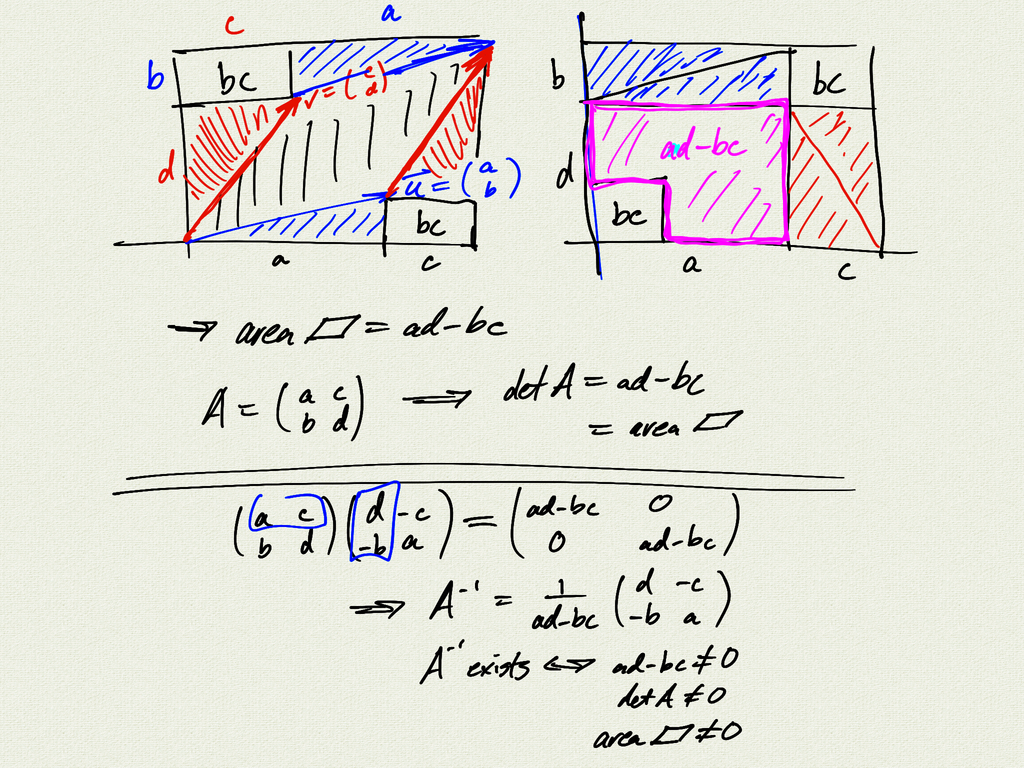 c a
b bc v = (c d)
d
u = (a b)
bc
a c
b bc
ad-bc
d
bc
a c
→ area ▱ = ad-bc
A = (a c b d) ⟹ det A = ad-bc
= area ▱
(a c b d)(d -c -b a) = (ad-bc 0 0 ad-bc)
⟹ A⁻¹ = 1/ad-bc (d -c -b a)
A⁻¹ exists ⟷ ad-bc ≠ 0
det A ≠ 0
area ▱ ≠ 0